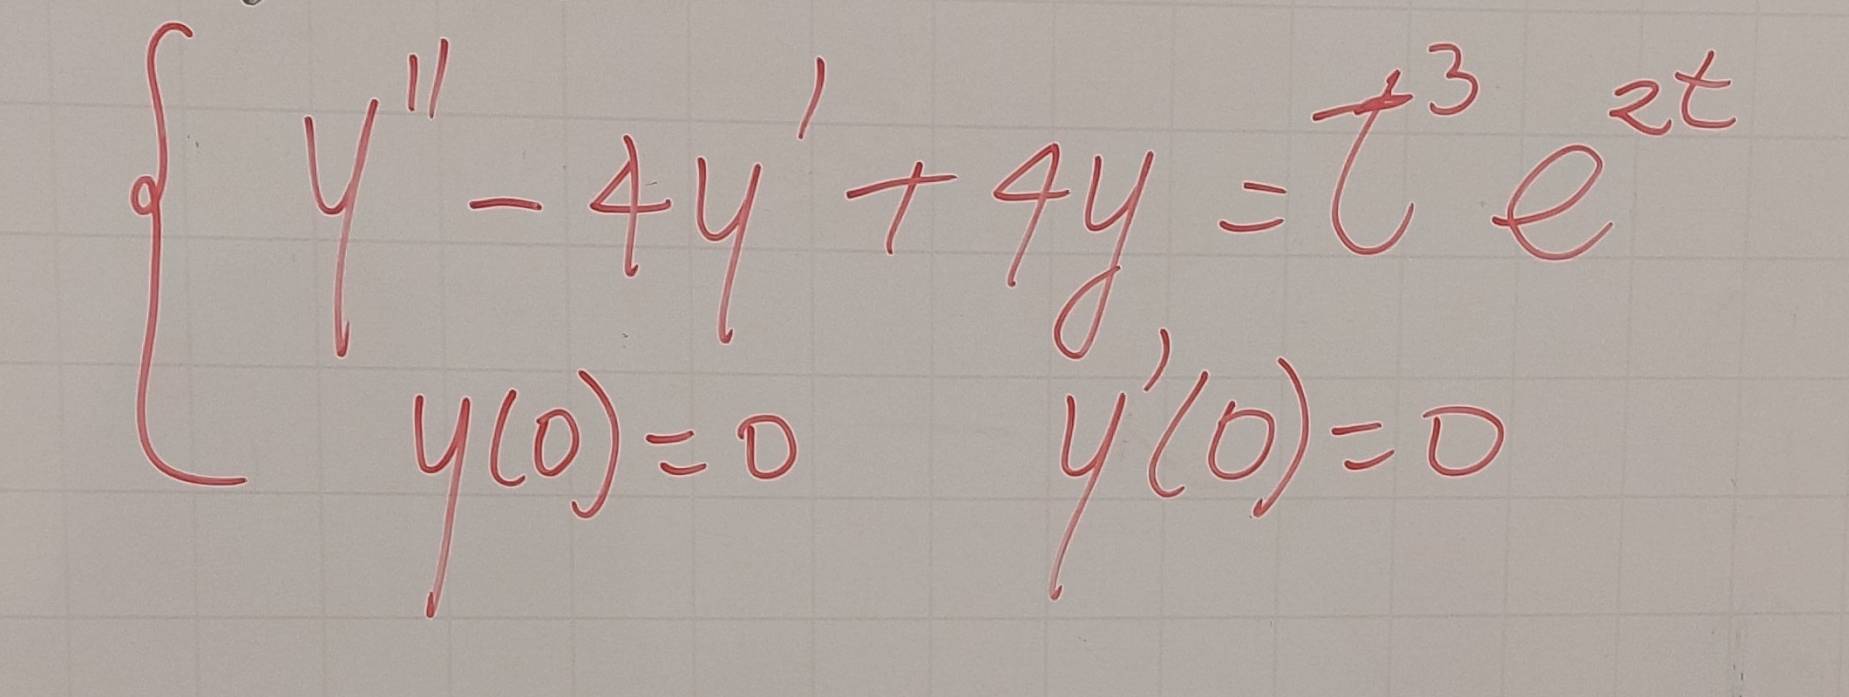 y'' - 4y' + 4y = t³ e²ᵗ
y(0) = 0 y'(0) = 0